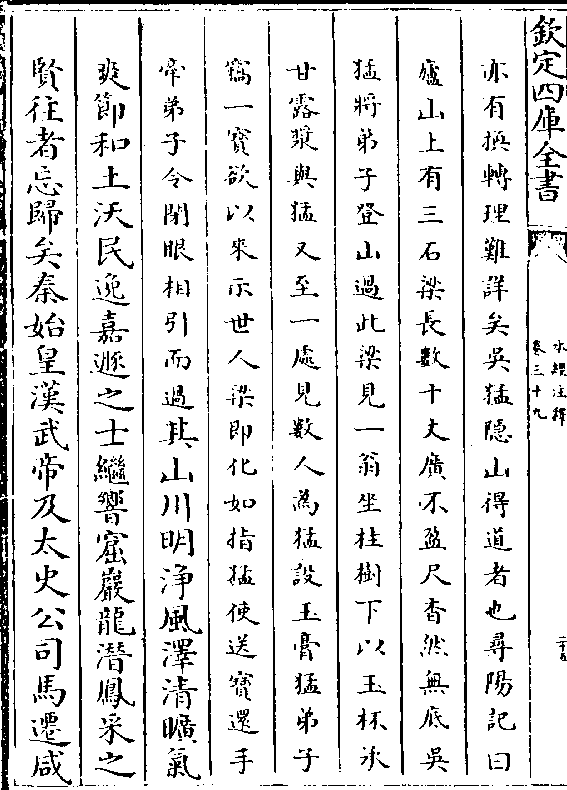 欽定四庫全書
水經注釋
卷三十九
亦有换轉理難詳矣吳猛隱山得道者也尋陽記曰
廬山上有三石梁長數十丈廣不盈尺杳然無底吳
猛將弟子登山過此梁見一翁坐桂樹下以玉杯承
甘露漿與猛又至一處見數人為猛設玉膏猛弟子
竊一寳欲以來示世人梁即化如指猛使送寳還手
牵弟子令閉眼相引而過其山川明浄風澤清曠氣
爽節和土沃民逸嘉遯之士繼響窟巖龍潛鳳采之
賢往者忘歸矣秦始皇漢武帝及太史公司馬遷咸